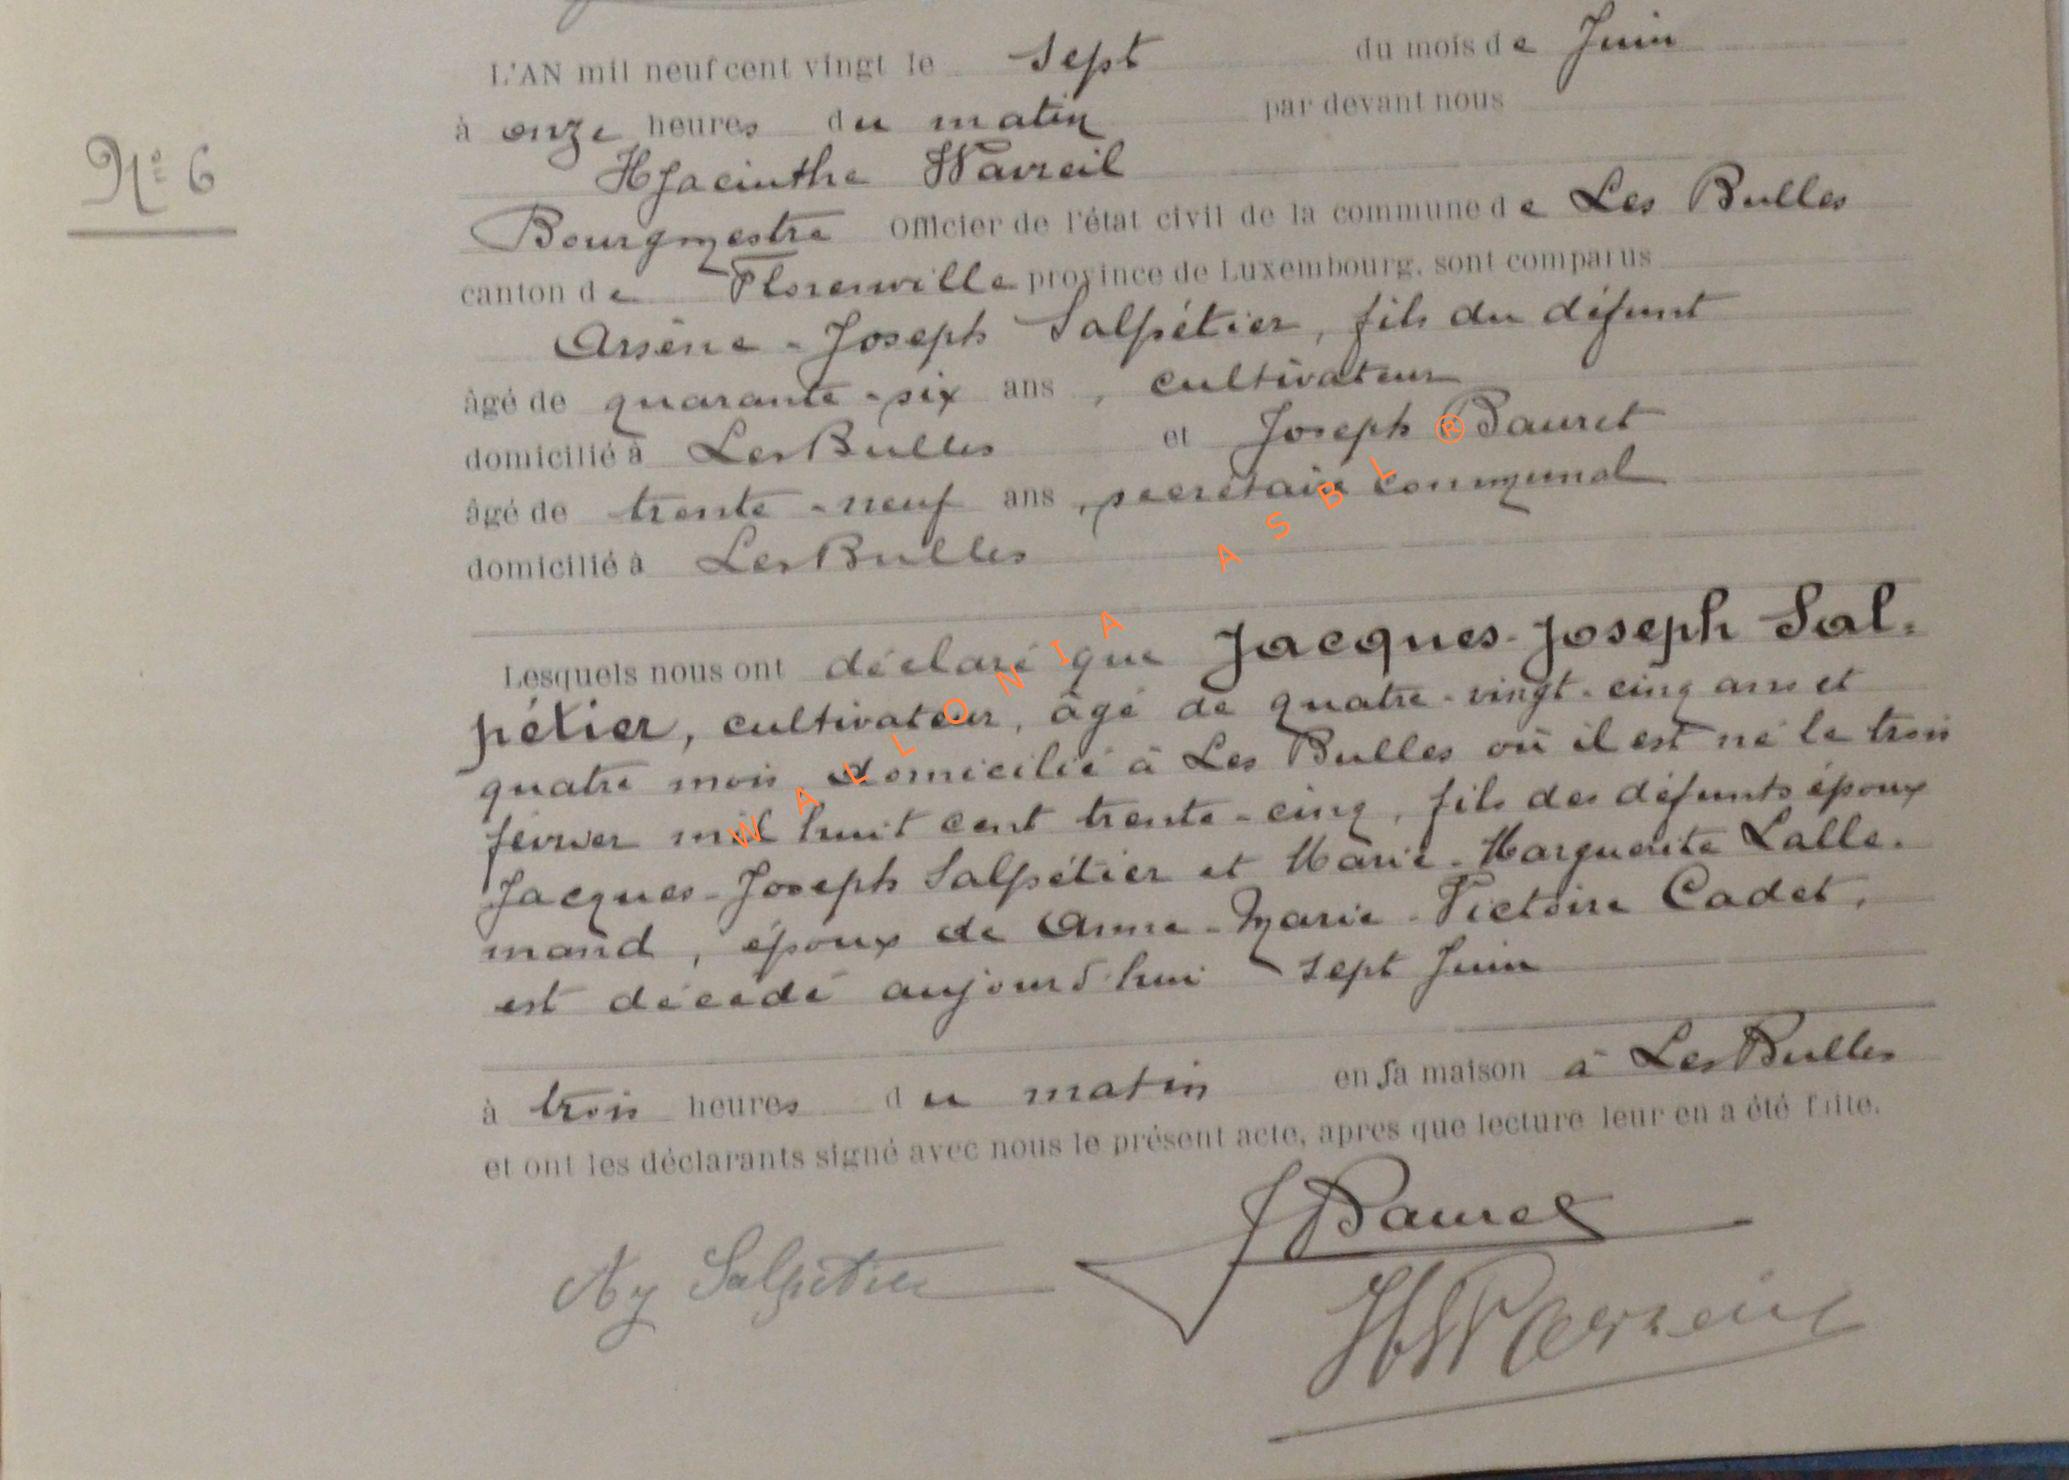 L'AN mil neuf cent vingt le sept du mois de Juin
à onze heures du matin par devant nous
Hyacinthe Wavreil
N° 6
Bourgmestre Officier de l'état civil de la commune de Les Bulles
canton de Florenville province de Luxembourg, sont comparus
Arsène-Joseph Salpétier, fils du défunt
âgé de quarante-six ans, cultivateur
domicilié à Les Bulles et Joseph Bauret
âgé de trente-neuf ans, secrétaire communal
domicilié à Les Bulles
® WALLONIA ASBL
Lesquels nous ont déclaré que Jacques-Joseph Sal-
pétier, cultivateur, âgé de quatre-vingt-cinq ans et
quatre mois domicilié à Les Bulles où il est né le trois
février mil huit cent trente-cinq, fils des défunts époux
Jacques-Joseph Salpétier et Marie-Marguerite Lalle-
mand, époux de Anne-Marie-Victoire Cadet,
est décédé aujourd'hui sept Juin
à trois heures du matin en sa maison à Les Bulles
et ont les déclarants signé avec nous le présent acte, apres que lecture leur en a été faite.
J Bauret
Salpétier
H Wavreil